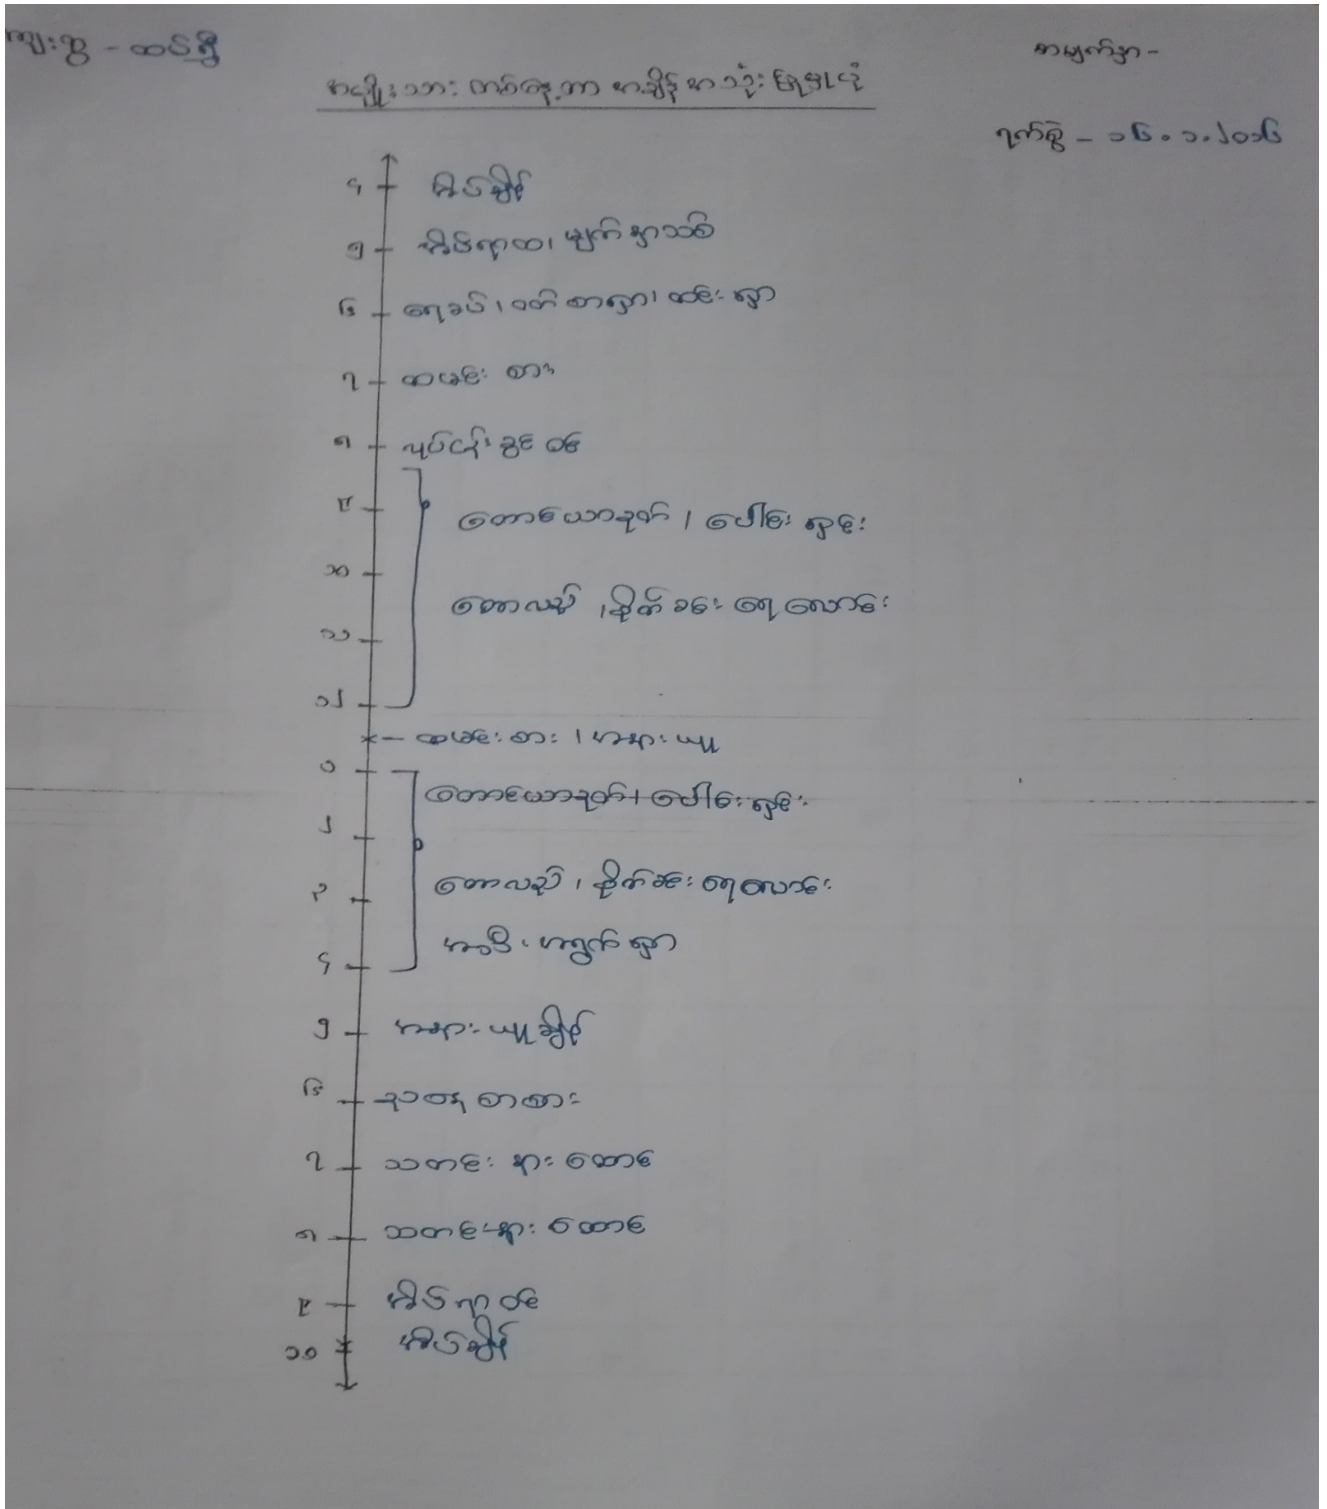 ကျေးရွာ - ထပ်ရှို
စာမျက်နှာ -
အမျိုးသား တစ်နေ့တာ အချိန် အသုံးပြုမှုပုံ
ရက်စွဲ - ၁၆.၁.၂၀၁၆
၄ အိပ်ချိန်
၅ အိပ်ရာထ၊ မျက်နှာသစ်
၆ ရေခပ်၊ ဝက်စာရှာ၊ ထင်းရှာ
၇ ထမင်း စား
၈ လုပ်ငန်းခွင် ဝင်
၉ တောင်ယာခုတ် ၊ ပေါင်းရှင်း
၁၀
တောလည် ၊ စိုက်ခင်း ရေလောင်း
၁၁
၁၂
ထမင်းစား ၊ အနားယူ
၁
တောင်ယာခုတ်၊ ပေါင်းရှင်း
၂
၃ တောလည် ၊ စိုက်ခင်း ရေလောင်း
အသီး အရွက် ရှာ
၄
၅ အနား ယူချိန်
၆ ညစာ စား
၇ သတင်း နားထောင်
၈ သတင်းနား ထောင်
၉ အိပ်ရာဝင်
၁၀ အိပ်ချိန်